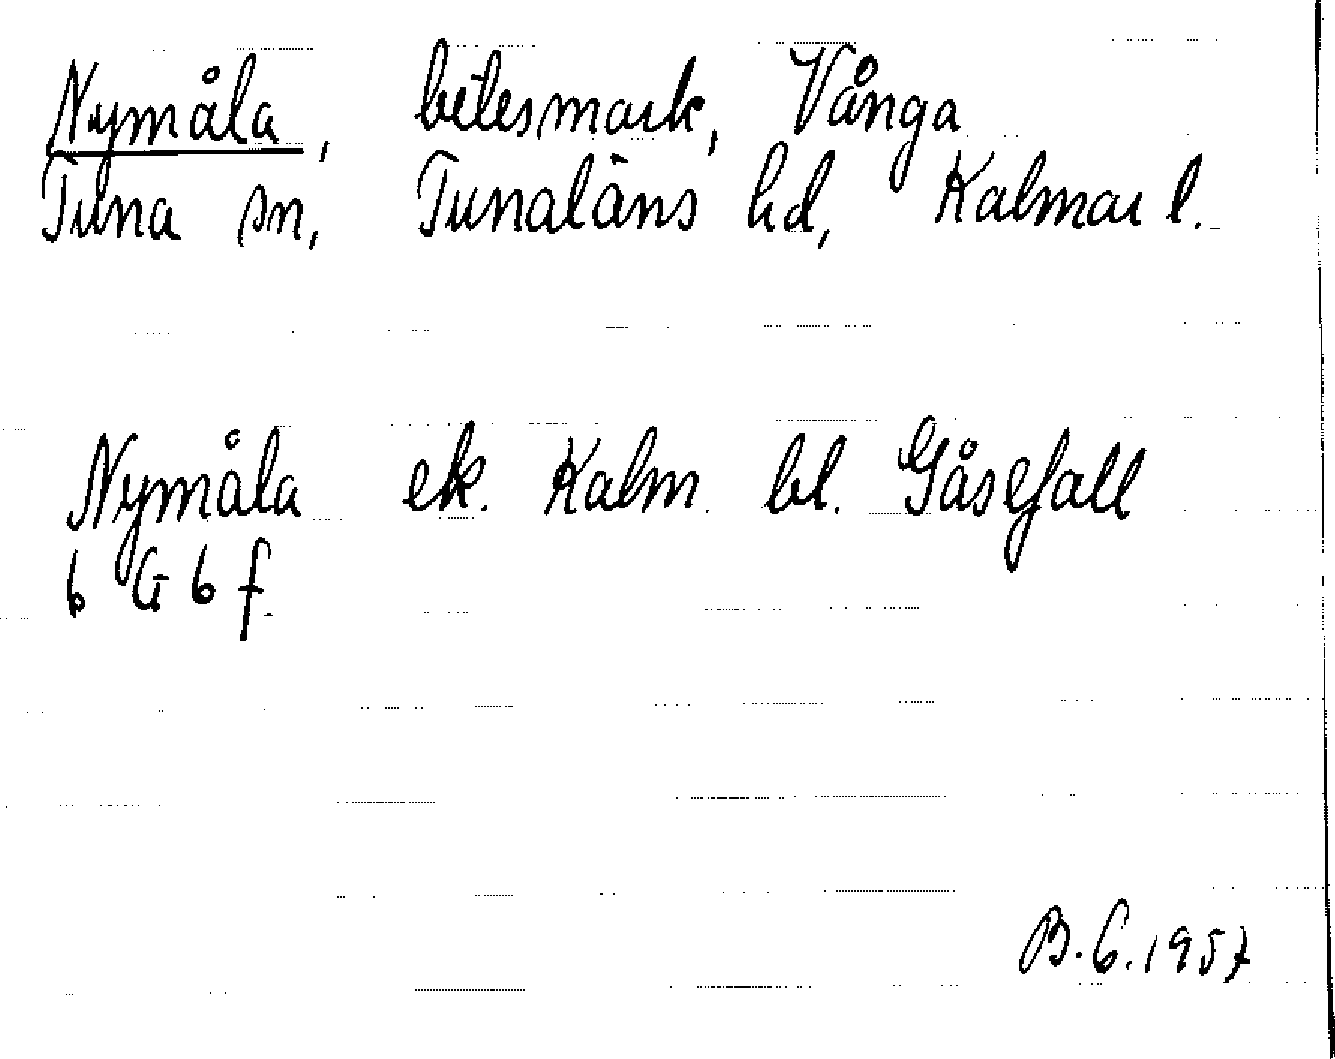 Nymåla, betesmark, Vånga
Tuna sn, Tunaläns hd, Kalmar l.
Nymåla ek. Kalm. bl. Gåsefall
6 G 6 f
B.G.1957